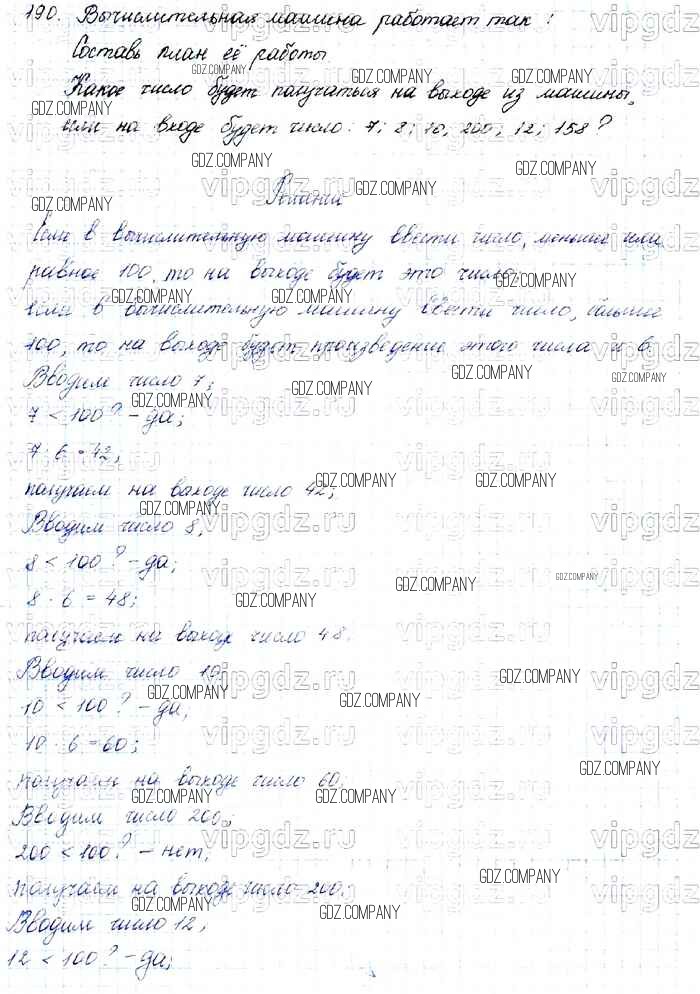 190. Вычислительная машина работает так:
Составь план её работы
Какое число будет получаться на выходе из машины,
если на входе будет число: 7; 8; 10; 200; 12; 158?
Решение
Если в вычислительную машину ввести число, меньше или
равное 100, то на выходе будет это число.
если в вычислительную машину ввести число, больше
100, то на выходе будет произведение этого числа и 6.
Вводим число 7;
7 < 100? - да;
7 · 6 = 42;
получаем на выходе число 42;
Вводим число 8;
8 < 100? - да;
8 · 6 = 48;
получаем на выходе число 48.
Вводим число 10;
10 < 100? - да;
10 · 6 = 60;
получаем на выходе число 60;
Вводим число 200;
200 < 100? - нет;
получаем на выходе число 200;
Вводим число 12;
12 < 100? - да;